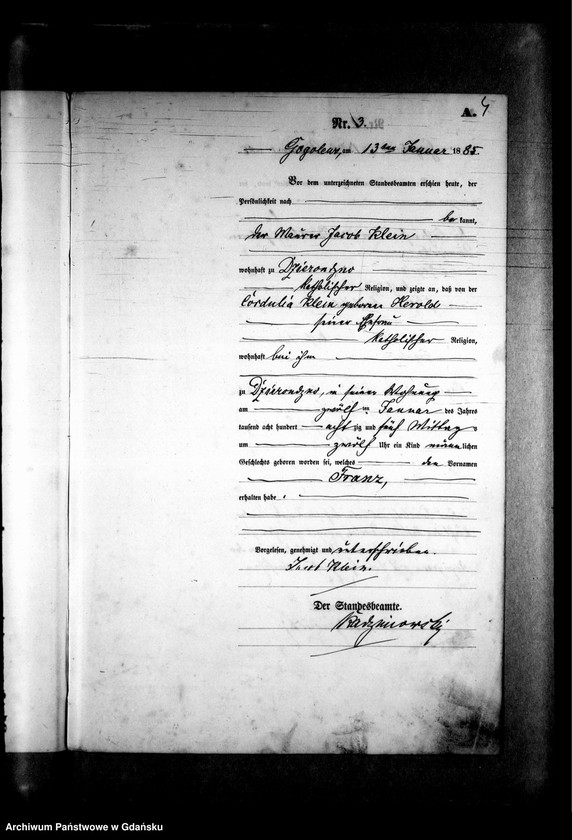 A. 4
Nr. 3.
Gogolenz, am 13ten Januar 1885.
Vor dem unterzeichneten Standesbeamten erschien heute, der
Persönlichkeit nach
be kannt,
der Maurer Jacob Klein
wohnhaft zu Dzierondzno
katholischer Religion, und zeigte an, daß von der
Cordulia Klein geboren Herold
seiner Ehefrau
katholischer Religion,
wohnhaft bei ihm
zu Dzierondzno, in seiner Wohnung
am zwölf ten Januar des Jahres
tausend acht hundert acht zig und fünf Mittag s
um zwölf Uhr ein Kind männ lichen
Geschlechts geboren worden sei, welches den Vornamen
Franz,
erhalten habe.
Vorgelesen, genehmigt und unterschrieben.
Jacob Klein.
Der Standesbeamte.
Archiwum Państwowe w Gdańsku